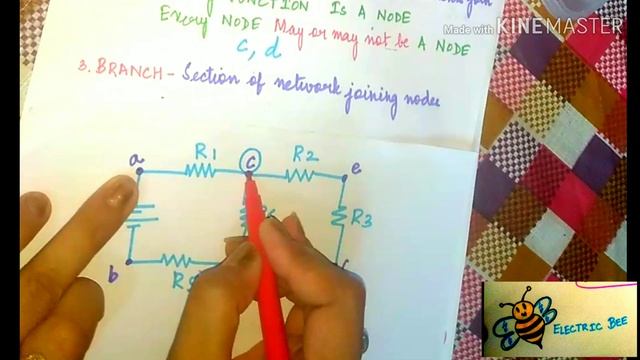 JUNCTION IS A NODE
Made with KINEMASTER
Every NODE May or may not be A NODE
C, d
3. BRANCH - Section of network joining nodes
a R1 C R2 e
R3
b
ELECTRIC BEE